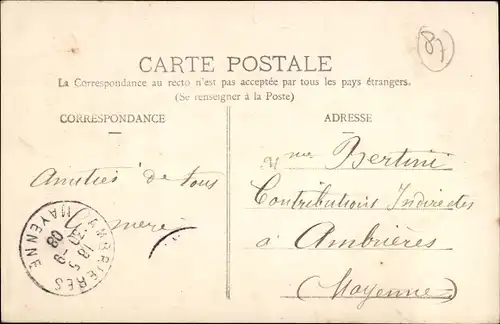 CARTE POSTALE
La Correspondance au recto n'est pas acceptée par tous les pays étrangers.
(Se renseigner à la Poste)
CORRESPONDANCE
ADRESSE
87
Amitiés de tous
Mme Bertini
Contributions Indirectes
à Ambrières
(Mayenne)
AMBRIERES
MAYENNE